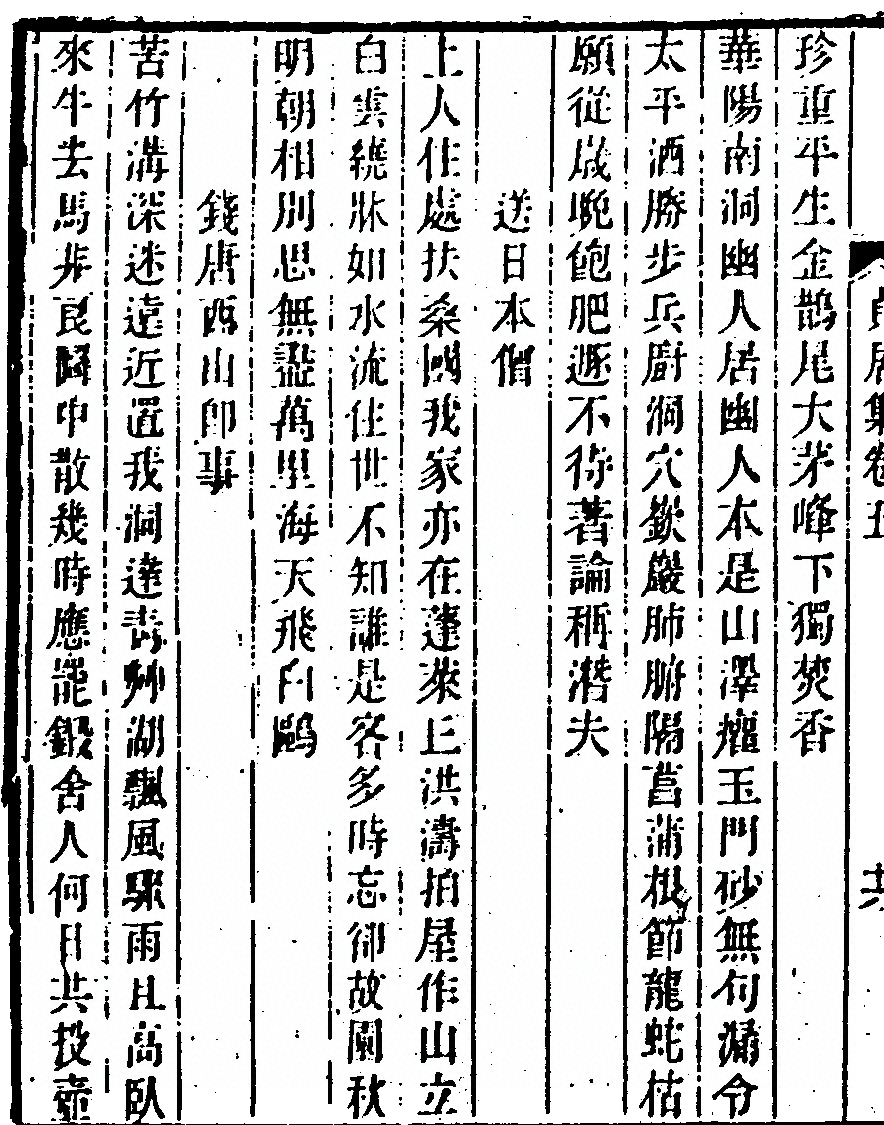 貞居集卷五
十六
珍重平生金鵲尾大茅峰下獨焚香
華陽南洞幽人居幽人本是山澤癯玉門砂無句漏令
太平酒勝步兵廚洞穴嵚巖肺腑隔菖蒲根節龍蛇枯
願從歲晚飽肥遯不待著論稱潛夫
送日本僧
上人住處扶桑國我家亦在蓬萊丘洪濤拍屋作山立
白雲繞牀如水流住世不知誰是客多時忘卻故園秋
明朝相別思無盡萬里海天飛白鷗
錢唐西山即事
苦竹溝深迷遠近置我洞達青艸湖飄風驟雨且高臥
來牛去馬非良圖中散幾時應罷鍛舍人何日共投壺